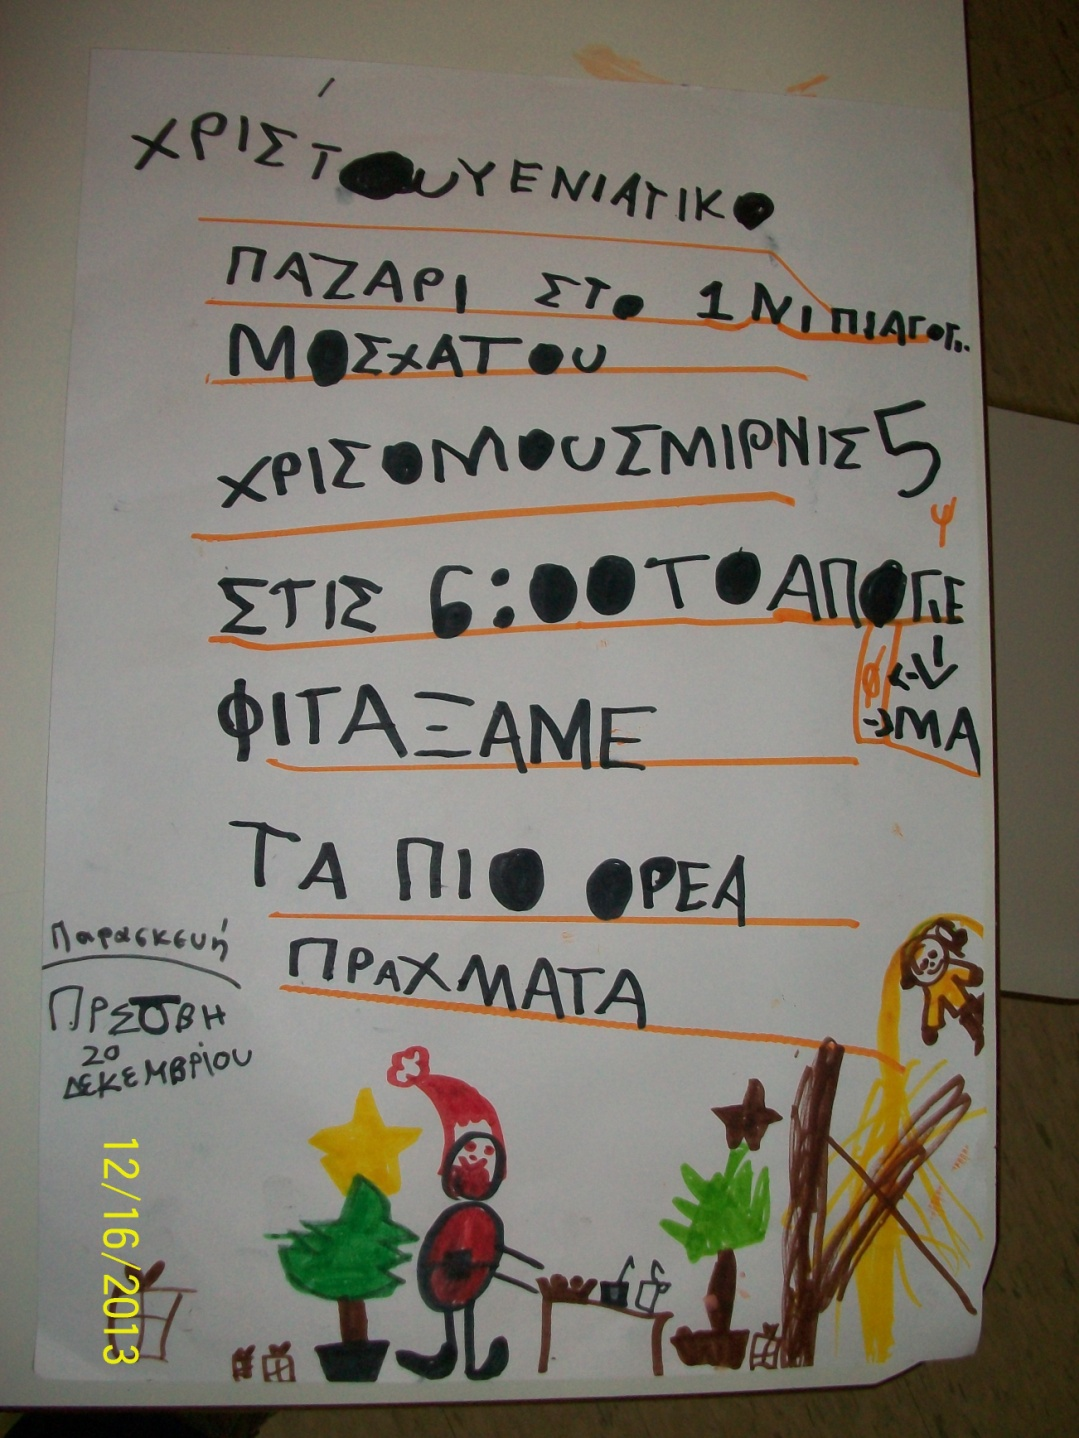 ΧΡΙΣΤΟυΥΕΝΙΑΤΙΚΟ
ΠΑΖΑΡΙ ΣΤΟ 1 ΝΙΠΙΑΓΟΓι.
ΜΟΣΧΑΤΟυ
ΧΡΙΣΟΜΟυΣΜΙΡΝΙΣ 5
Ψ
ΣΤΙΣ 6:00 ΤΟ ΑΠΟΓΕ
ΜΑ
ΦΙΤΑΞΑΜΕ
ΤΑ ΠΙΟ ΟΡΕΑ
ΠΡΑΧΜΑΤΑ
Παρασκευή
20
ΔΕΚΕΜΒΡίου
12/16/2013